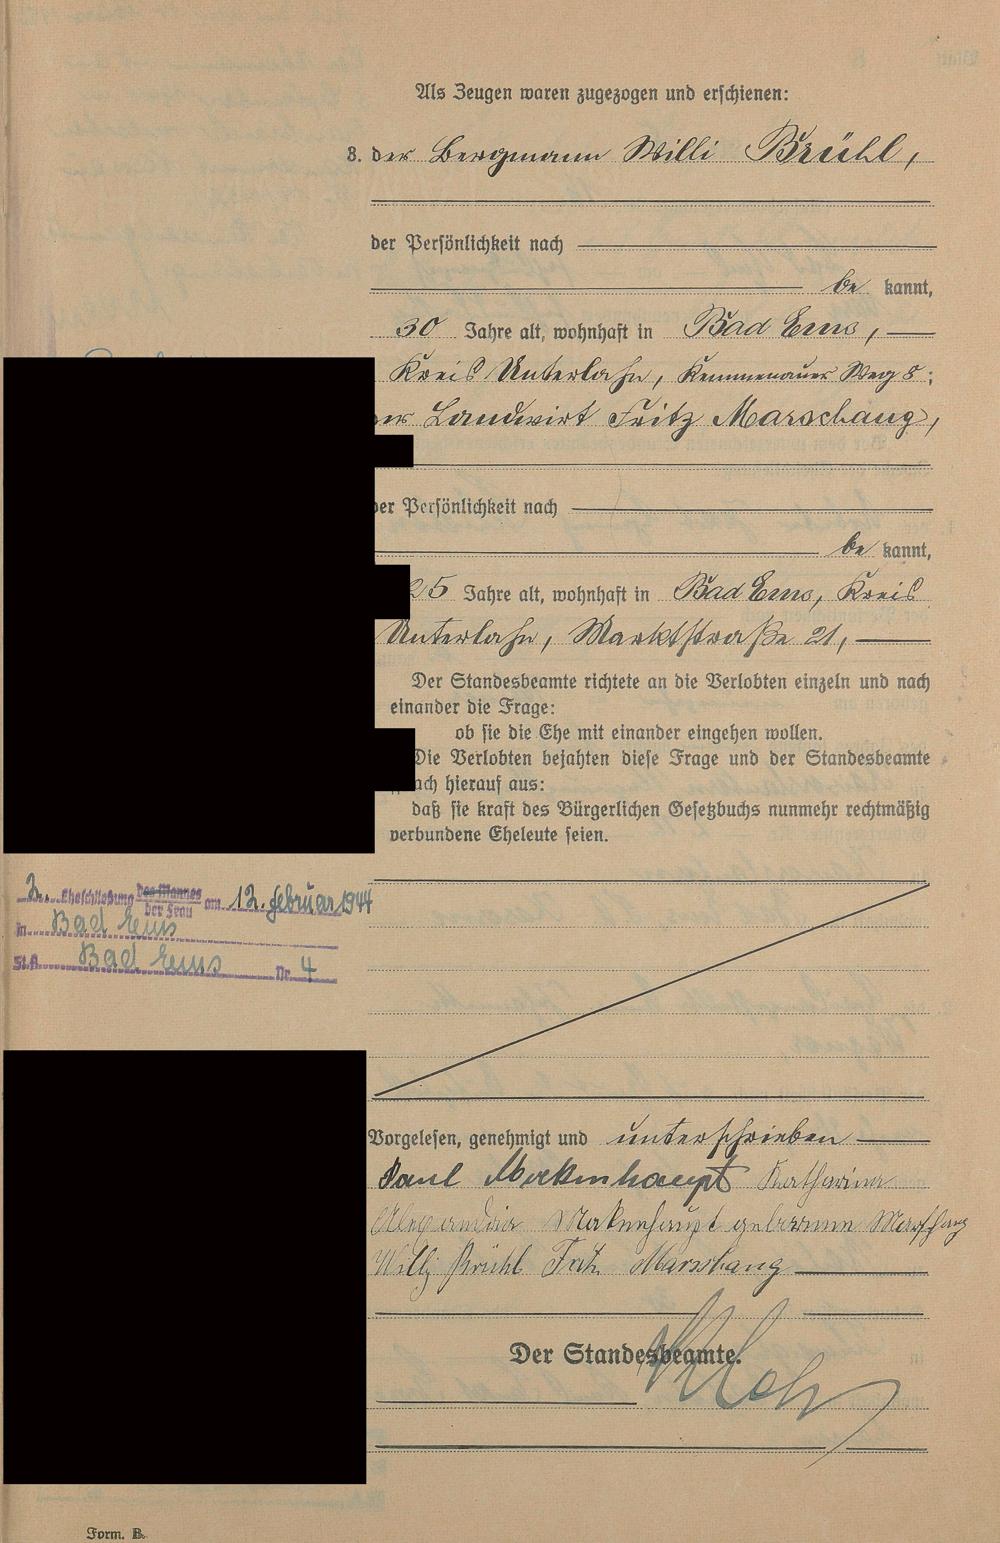 Als Zeugen waren zugezogen und erschienen:
3. der Bergmann Willi Brühl,
der Persönlichkeit nach
be kannt,
30 Jahre alt, wohnhaft in Bad Ems,
Kreis Unterlahn, Kemmenauer Weg 8;
er Landwirt Fritz Marschang,
der Persönlichkeit nach
be kannt,
25 Jahre alt, wohnhaft in Bad Ems, Kreis
Unterlahn, Marktstraße 21,
Der Standesbeamte richtete an die Verlobten einzeln und nach
einander die Frage:
ob sie die Ehe mit einander eingehen wollen.
Die Verlobten bejahten diese Frage und der Standesbeamte
ach hierauf aus:
daß sie kraft des Bürgerlichen Gesetzbuchs nunmehr rechtmäßig
verbundene Eheleute seien.
2. Eheschließung des Mannes
der Frau am 12. Februar 1944
in Bad Ems
St.A. Bad Ems Nr. 4
Vorgelesen, genehmigt und unterschrieben
Paul Mockenhaupt Katharina
Alexandria Mokenhaupt geborenne Marschang
Willy Brühl Fritz Marschang
Der Standesbeamte.
Form. B.